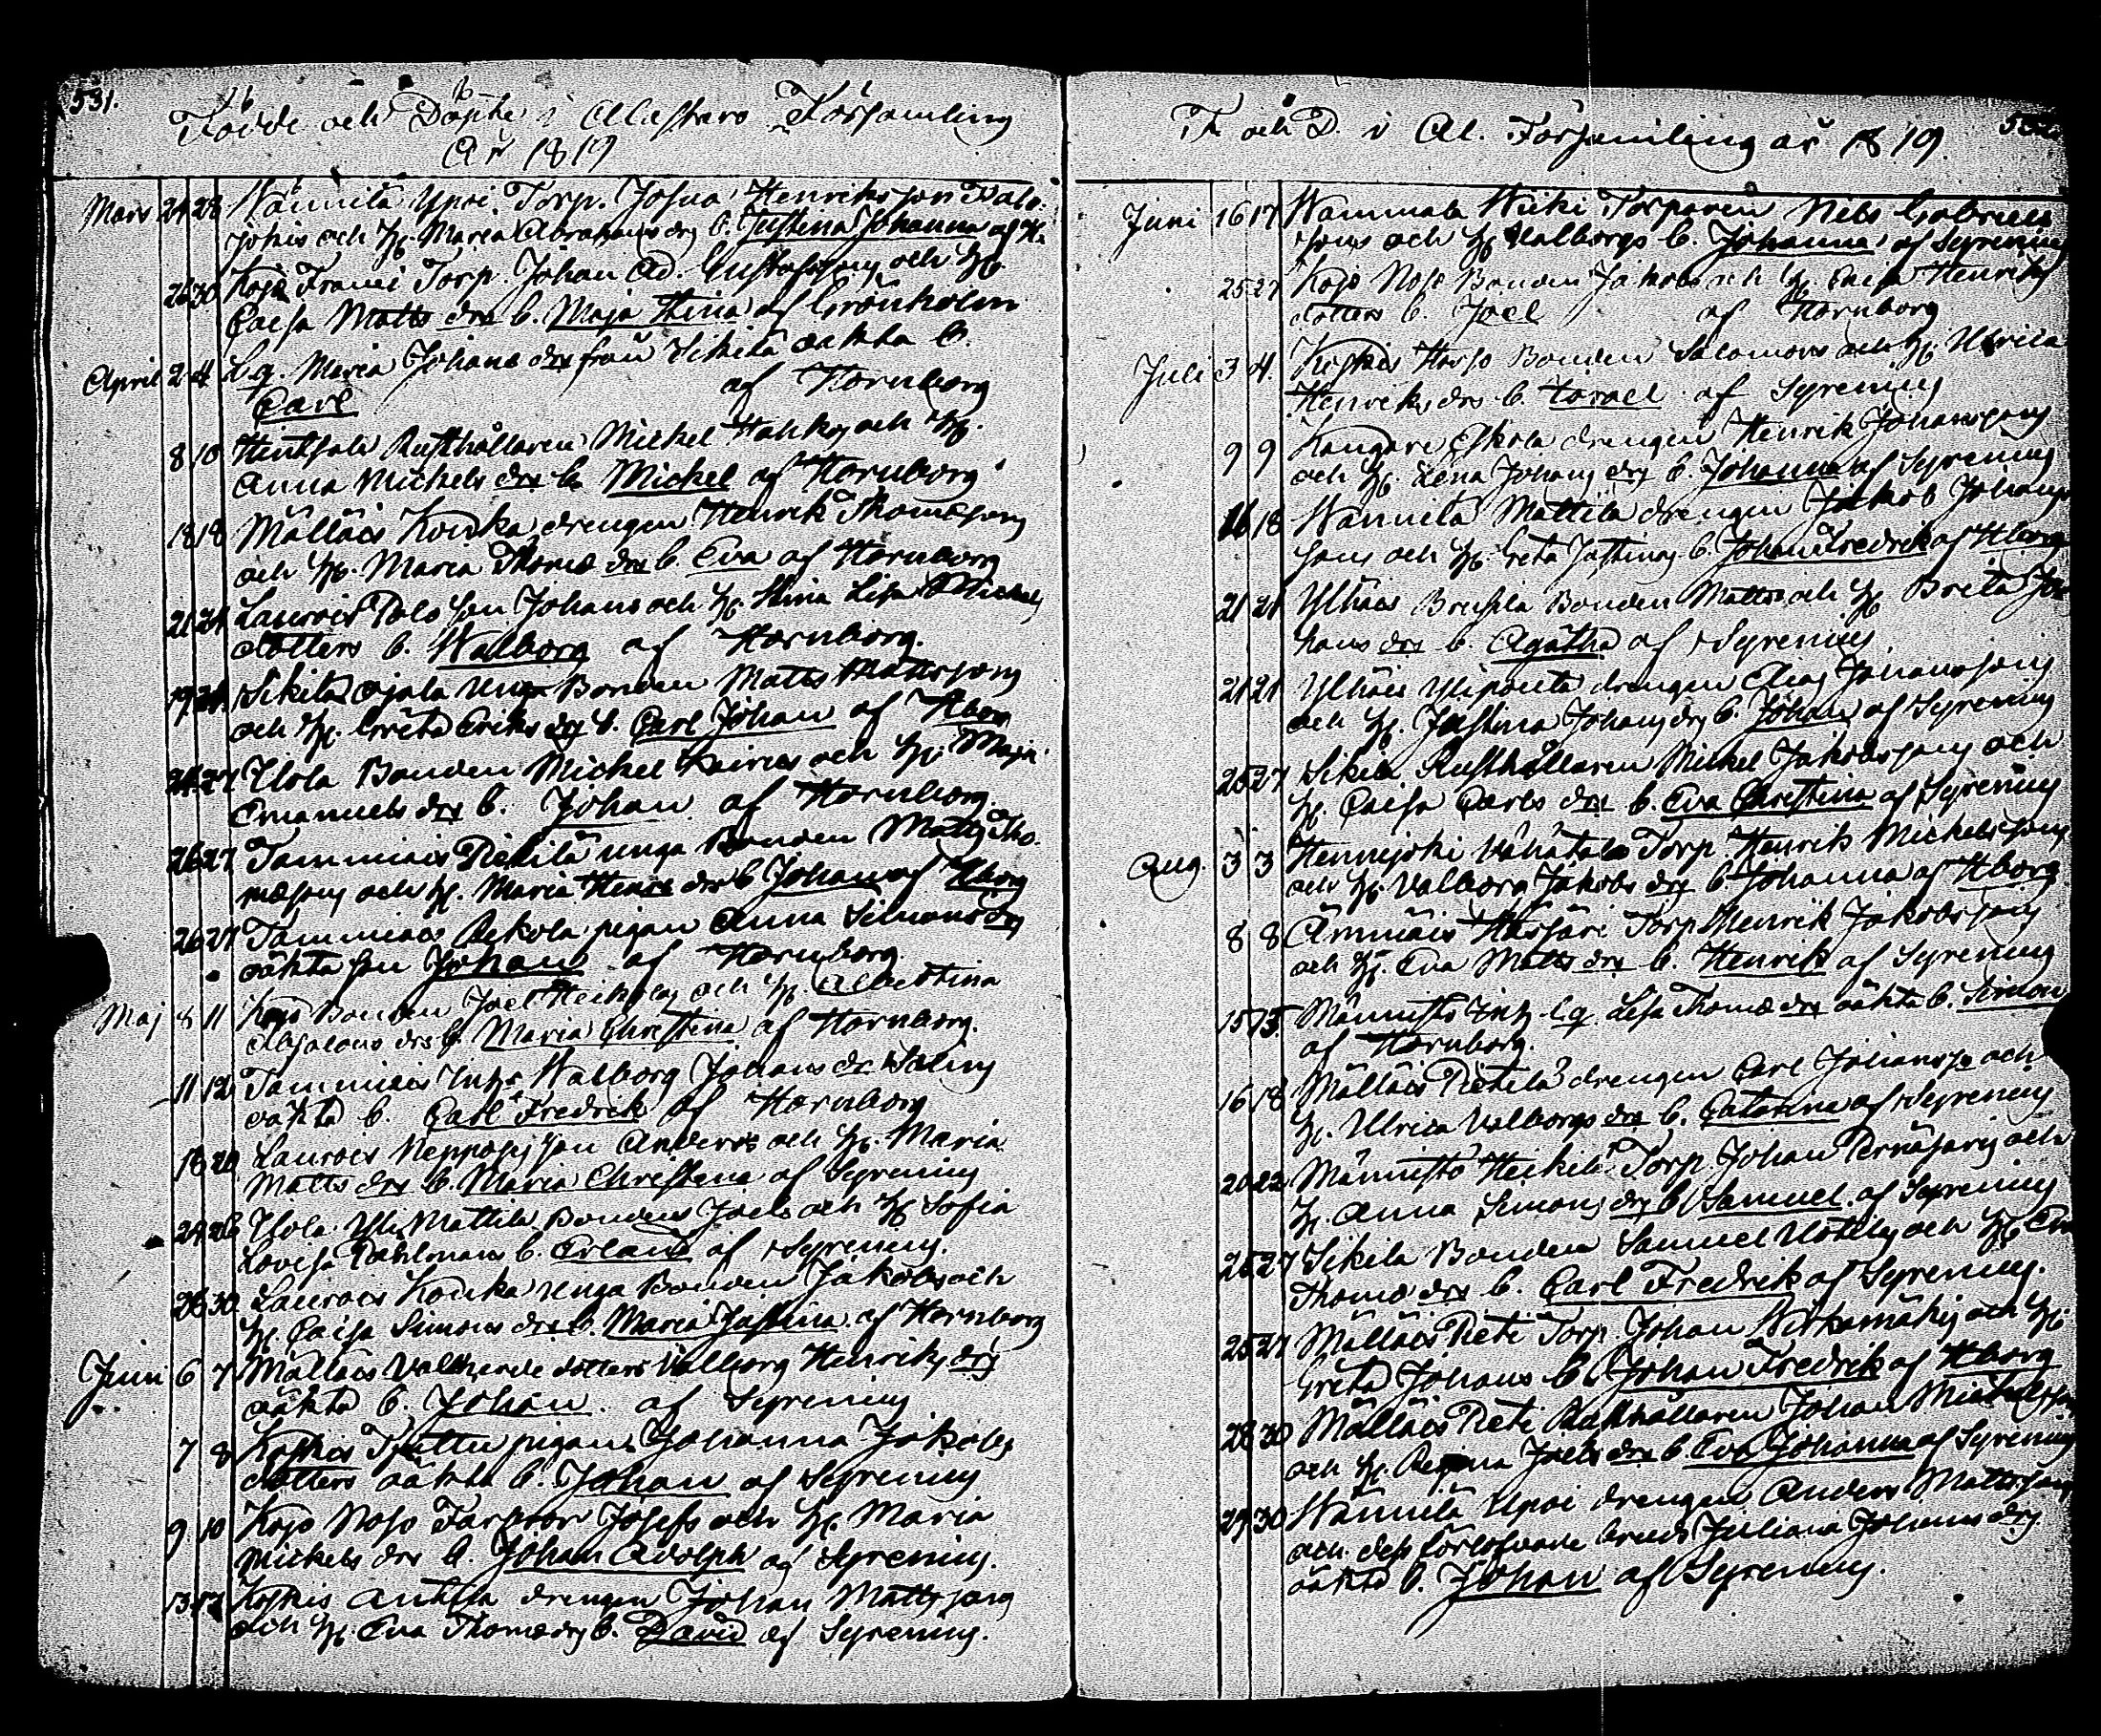 531.
Födde och Döpte i Alastaro Församling
År 1819
Mars 24 28 Wännilä Ypoi Torp. Josua Henriksson
jokis och H. Maria Abrahams drs b. Justina Johanna af H.
26 30 Kojo Frami Torp. Johan Ad. Gustafssons och H.
Caisa Matts drs b. Maja Stina af Grönholm
April 2 4 Lq. Maria Johans drs från Sikilä oäkta b.
Carl af Hornborg
8 10 Hinthala Rusthållaren Mickel och H.
Anna Mickels drs b. Mickel af Hornborg
18 18 Mälläis Kouka drengen Henrik Thomæsons
och H. Maria Thomæ drs b. Eva af Hornborg
21 24 Laurois Polo son Johans och H. Stina Lisa Mickels
dotters b. Walborg af Hornborg.
19 24 Sikilä Ojala unga Bonden Matts Mattssons
och H. Greta Eriks drs b. Carl Johan af Hborg
24 27 Ylola Bonden Mickel och H. Maja
Emanuels drs b. Johan af Hornborg.
26 27 Tammiais Pietilä unga Bonden Matts Tho-
mæsons och H. Maria Henrs drs b. Johan af Hborg
26 27 Tammiais Rekola pigan Anna Simons drs
oäkta son Johan af Hornborg.
Maj 8 11 Kojo Bonden Joel och H. Albertina
Absalons drs b. Maria Christina af Hornborg.
11 12 Tammiais Inhs Walborg Johans dr
oäkta b. Carl Fredrik af Hornborg
18 20 Laurois son Anders och H. Maria
Matts drs b. Maria Christina af Syrenius
24 26 Ylola Yli Mattila Bonden Joels och H. Sofia
Lovisa b. Erland af Syrenius.
26 30 Laurois Kouka unga Bonden Jakobs och
H. Caisa Simons drs b. Maria Justina af Hornborg
Juni 6 7 Mälläis dotters Valborg Henriks drs
oäkta b. Johan af Syrenius
7 8 Koskis pigans Johanna Jakobs
dotters oäkta b. Johan af Syrenius
9 10 Kojo Nojo Josefs och H. Maria
Mickels drs b. Johan Adolph af Syrenius.
13 17 Koskis Anttila drengen Johan Mattssons
och H. Eva Thomæ drs b. David af Syrenius.
F. och D. i Al. Församling år 1819.
Juni 16 17 Wammala Wicki Torparen Nils Gabriels
sons och H. Walborgs b. Johanna af Syrenius
25 27 Kojo Nojo Bonden Jakobs och H. Caisa Henriks
dotters b. Joel af Hornborg
Juli 3 4. Koskis Bonden Salomons och H. Ulrica
Henriks drs b. Israel af Syrenius
9 9 Kangare Eskola drengen Henrik Johanssons
och H. Lena Johans drs b. Johanna af Syrenius
16 18 Wännilä Mattila drengen Jakob Johans
sons och H. Greta Justinas b. Johan Fredrik af Hborg
21 21 Ylhäis Bonden Matts och H. Brita Jo
hans drs b. Agatha af Syrenius
21 21 Ylhäis drengen Elias Johanssons
och H. Justina Johans drs b. Johan af Syrenius
25 27 Sikilä Rusthållaren Mickel Jakobssons och
H. Caisa Carls drs b. Eva Christina af Syrenius
Aug. 3 3 Hennijoki Torp. Henrik Mickelssons
och H. Valborg Jakobs drs b. Johanna af Hborg
8 8 Ämmäis Torp. Henrik Jakobssons
och H. Eva Matts drs b. Henrik af Syrenius
15 15 Männistö Inh. Lq. Lisa Thomæ drs oäkta b. Simon
af Hornborg.
16 18 Mälläis Pietilä drengen Carl Johanss. och
H. Ulrica Valborgs drs b. Catarina af Syrenius
20 22 Männistö Heikilä Torp. Johan och
H. Anna Simons drs b. Samuel af Syrenius
25 27 Sikilä Bonden Samuel och H.
Thomæ drs b. Carl Fredrik af Syrenius.
25 27 Mälläis Pieti Torp. Johan och H.
Greta Johans b. Johan Fredrik af Hborg
28 30 Mälläis Pieti Rusthållaren Johan
och H. Regina Joels drs b. Eva Johanna af Syrenius
29 30 Wännilä Ypoi drengen Anders Mattssons
och dess förlofvade Juliana Johans drs
oäkta b. Johan af Syrenius.